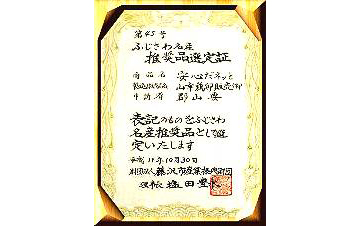 第45号
ふじさわ名産
推奨品選定証
商品名 安心だネッと
申請者 郡山 安
表記のものをふじさわ
名産推奨品として選
定いたします
平成11年10月30日
財団法人藤沢市産業振興財団
理事長 塩田